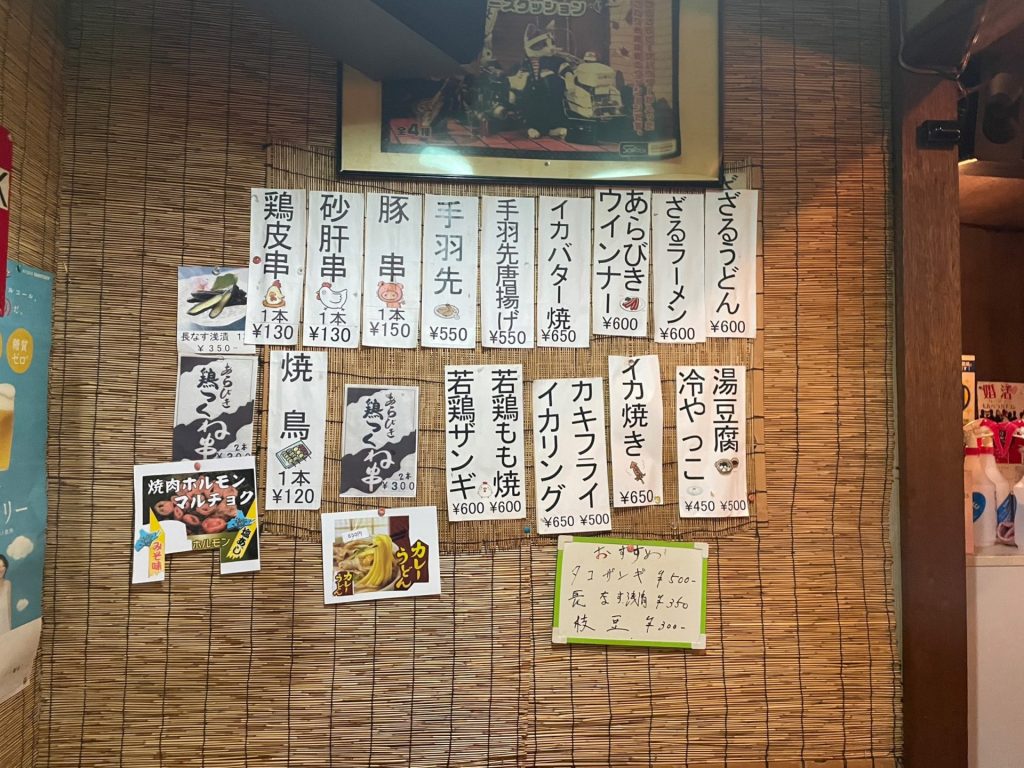 ースクッション
全4種
鶏皮串
1本
¥130
砂肝串
1本
¥130
豚串
1本
¥150
手羽先
¥550
手羽先唐揚げ
¥550
イカバター焼
¥650
あらびき
ウインナー
¥600
ざるラーメン
¥600
ざるうどん
¥600
長なす浅漬
¥350-
あらびき
鶏つくね串
2本
¥300
焼鳥
1本
¥120
あらびき
鶏つくね串
2本
¥300
若鶏ザンギ
¥600
若鶏もも焼
¥600
イカリング
¥650
カキフライ
¥500
イカ焼き
¥650
冷やっこ
¥450
湯豆腐
¥500
焼肉ホルモン
マルチョク
ホルモン
みそ味
塩あじ
650円
カレーうどん
カレーうどん
おすすめ!
タコザンギ ¥500-
長なす浅漬 ¥350
枝豆 ¥300-
糖質
ゼロ
婚活